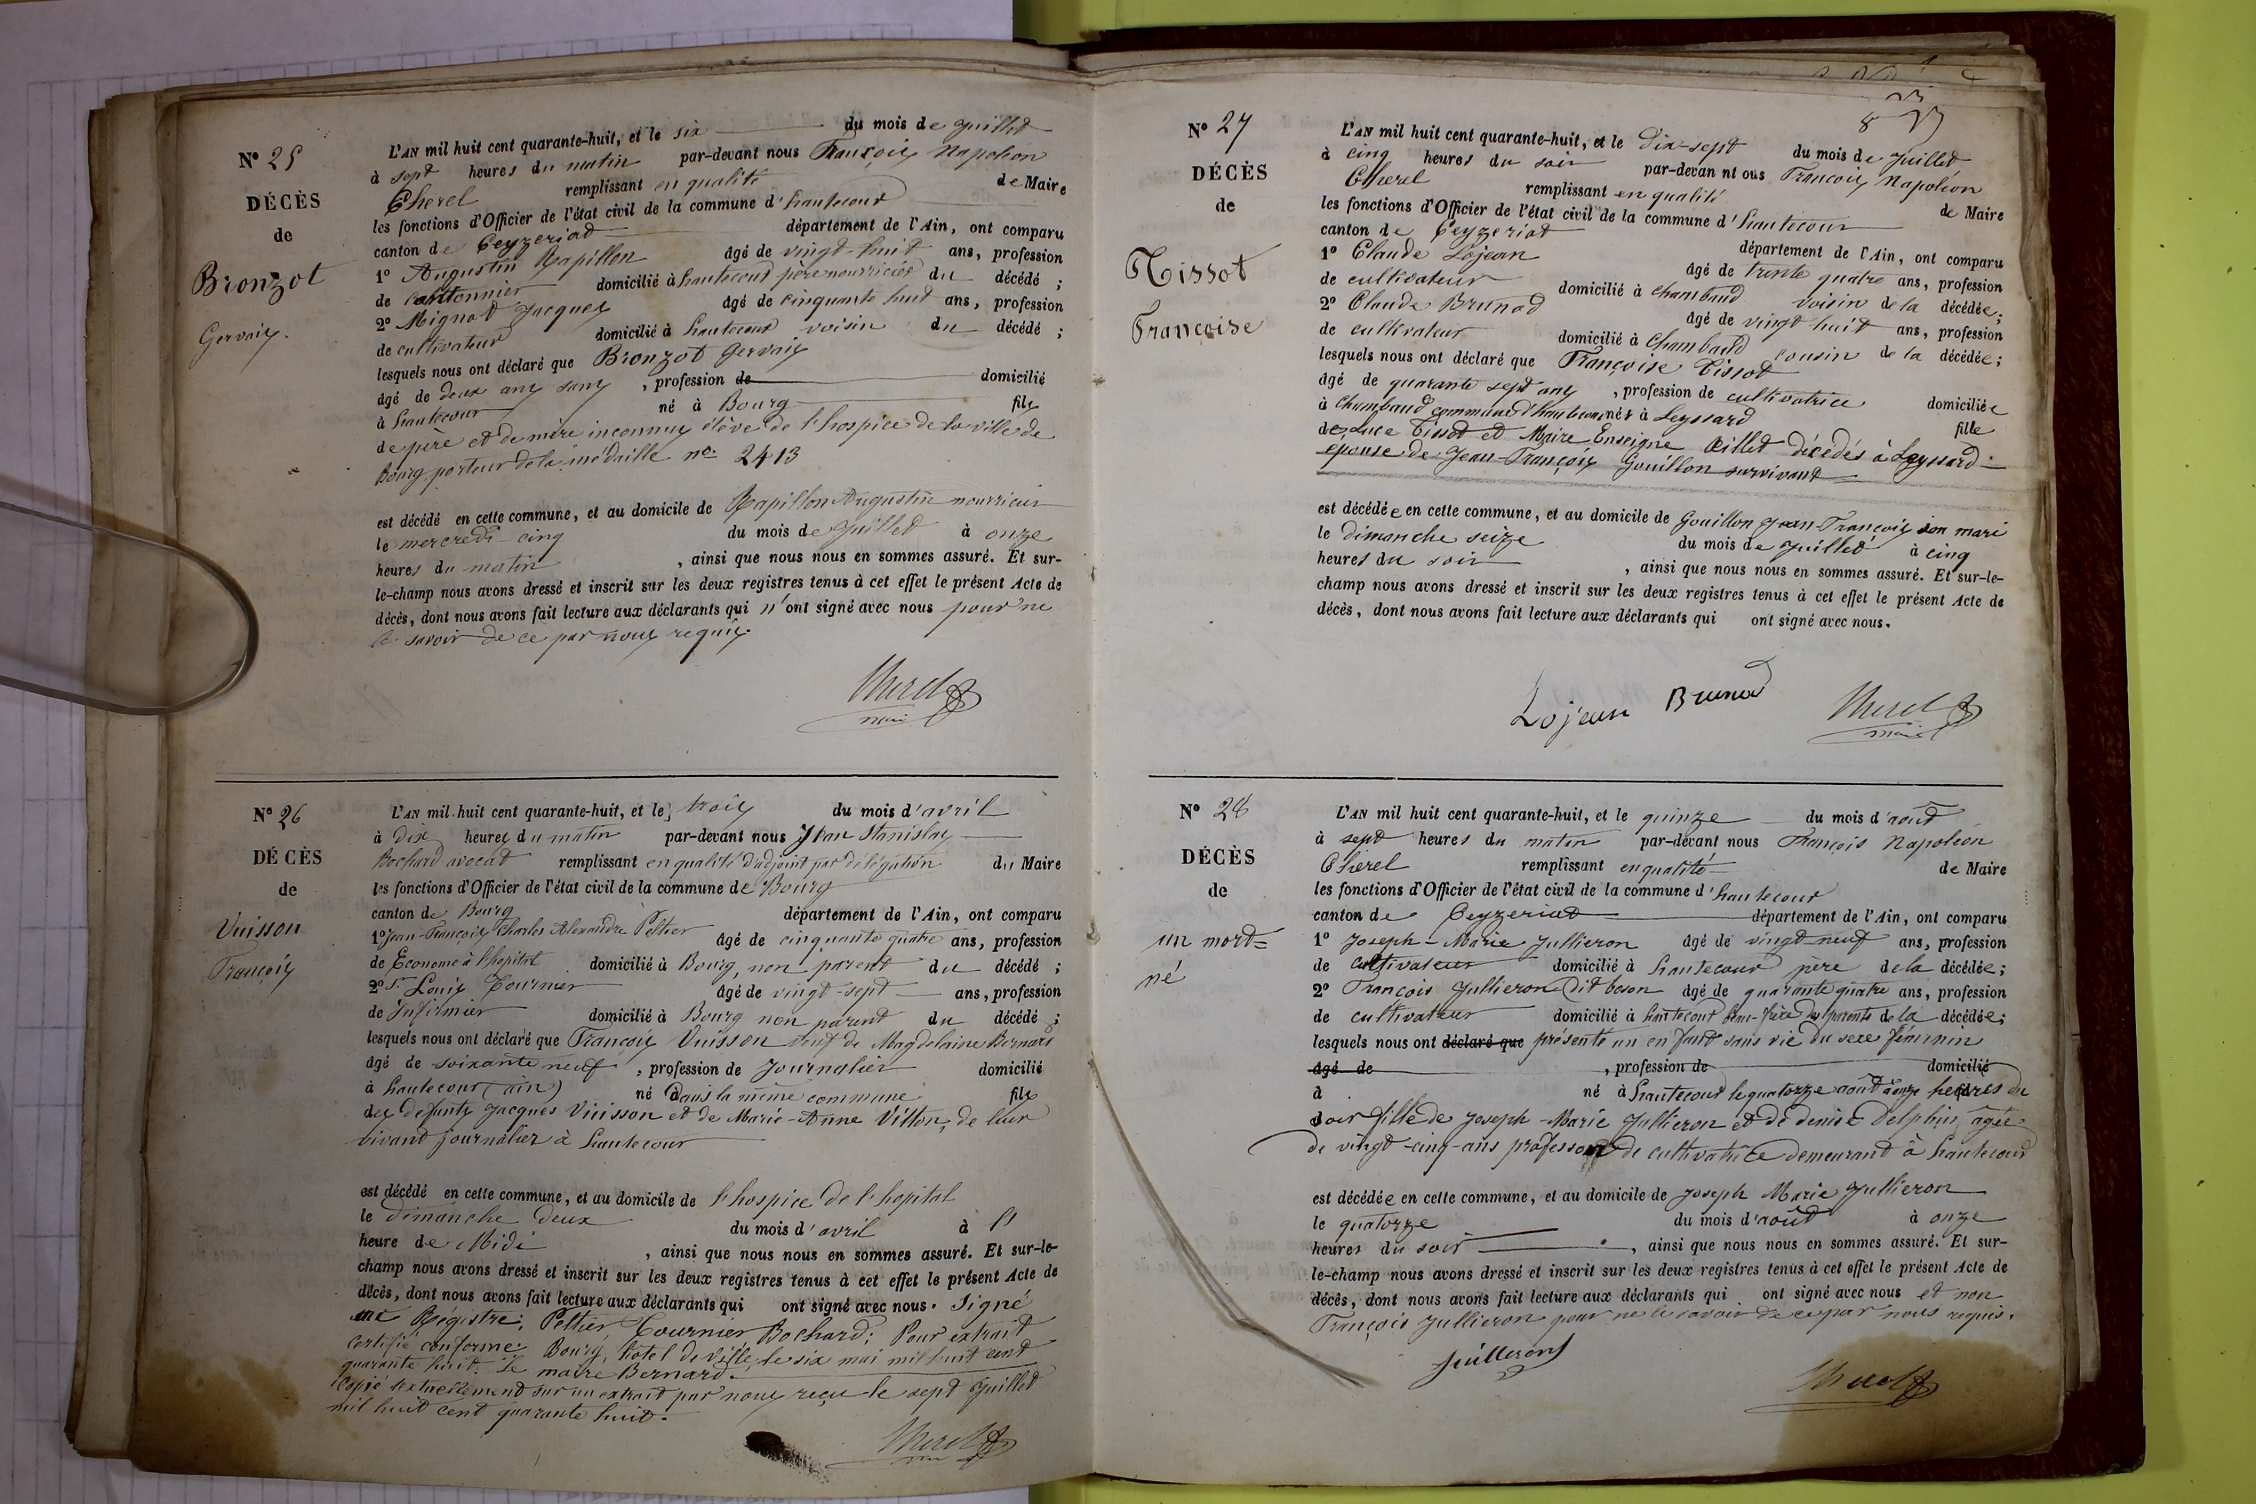 N° 25
DÉCÈS
de
Bronzot
Gervais.
L'AN mil huit cent quarante-huit, et le six du mois de juillet
à sept heures du matin par-devant nous François Napoléon
Cherel remplissant en qualité de Maire
les fonctions d'Officier de l'état civil de la commune d'hautecour
canton de Ceyzeriat département de l'Ain, ont comparu
1° Augustin Rapillon âgé de vingt-huit ans, profession
de cantonnier domicilié à hautecour père nourricier du décédé ;
2° Mignot Jacques âgé de cinquante huit ans, profession
de cultivateur domicilié à hautecour voisin du décédé ;
lesquels nous ont déclaré que Bronzot Gervais
âgé de deux ans sans , profession de domicilié
à hautecour né à Bourg fils
de père et de mère inconnus élève de l'hospice de la ville de
Bourg porteur de la médaille no. 2413
est décédé en cette commune, et au domicile de Rapillon Augustin nourricier
le mercredi cinq du mois de juillet à onze
heures du matin , ainsi que nous nous en sommes assuré. Et sur-
le-champ nous avons dressé et inscrit sur les deux registres tenus à cet effet le présent Acte de
décès, dont nous avons fait lecture aux déclarants qui n'ont signé avec nous pour ne
le savoir de ce par nous requis.
Cherel
maire
N° 26
DÉCÈS
de
Vuisson
François
L'AN mil huit cent quarante-huit, et le trois du mois d'avril
à dix heures du matin par-devant nous Jean Stanislas
Bochard avocat remplissant en qualité d'adjoint par délégation du Maire
les fonctions d'Officier de l'état civil de la commune de Bourg
canton de Bourg département de l'Ain, ont comparu
1° Jean-François Charles Alexandre Peltier âgé de cinquante quatre ans, profession
de Econome à l'hopital domicilié à Bourg, non parent du décédé ;
2° Sr Louis Tournier âgé de vingt-sept ans, profession
de Infirmier domicilié à Bourg non parent du décédé ;
lesquels nous ont déclaré que François Vuisson veuf de Magdelaine Bernard
âgé de soixante neuf , profession de Journalier domicilié
à hautecour (ain) né dans la même commune fils
des defunts Jacques Vuisson et de Marie-Anne Vitton, de leur
vivant journalier à hautecour
est décédé en cette commune, et au domicile de l'hospice de l'hopital
le dimanche deux du mois d'avril à l'
heure de Midi , ainsi que nous nous en sommes assuré. Et sur-le-
champ nous avons dressé et inscrit sur les deux registres tenus à cet effet le présent Acte de
décès, dont nous avons fait lecture aux déclarants qui ont signé avec nous. Signé
au Régistre, Peltier Tournier Bochard; Pour extrait
certifié conforme. Bourg, hotel de ville, le six mai mil huit cent
quarante huit. Le maire Bernard.
Copié textuellement sur un extrait par nous reçu le sept juillet
mil huit cent quarante huit.
Cherel
N° 27
DÉCÈS
de
Tissot
Françoise
L'AN mil huit cent quarante-huit, et le dix-sept du mois de juillet
à cinq heures du soir par-devant nous François Napoléon
Cherel remplissant en qualité de Maire
les fonctions d'Officier de l'état civil de la commune d'hautecour
canton de Ceyzeriat département de l'Ain, ont comparu
1° Claude Lojean âgé de trente quatre ans, profession
de cultivateur domicilié à Chambaud voisin de la décédée;
2° Claude Brunod âgé de vingt huit ans, profession
de cultivateur domicilié à Chambaud cousin de la décédée;
lesquels nous ont déclaré que Françoise Tissot
âgé de quarante sept ans , profession de cultivatrice domiciliée
à Chambaud commune d'hautecour née à Leyssard fille
de Luce Tissot et Marie Enseigne Œillet décédés à Leyssard
épouse de Jean-François Gouillon survivant
est décédée en cette commune, et au domicile de Gouillon Jean-François son mari
le dimanche seize du mois de juillet à cinq
heures du soir , ainsi que nous nous en sommes assuré. Et sur-le-
champ nous avons dressé et inscrit sur les deux registres tenus à cet effet le présent Acte de
décès, dont nous avons fait lecture aux déclarants qui ont signé avec nous.
Lojean Brunod Cherel
maire
N° 28
DÉCÈS
de
un mort-
né
L'AN mil huit cent quarante-huit, et le quinze du mois d'août
à sept heures du matin par-devant nous François Napoléon
Cherel remplissant en qualité de Maire
les fonctions d'Officier de l'état civil de la commune d'hautecour
canton de Ceyzeriat département de l'Ain, ont comparu
1° Joseph-Marie Jullieron âgé de vingt-neuf ans, profession
de cultivateur domicilié à hautecour père de la décédée;
2° François Jullieron dit beson âgé de quarante quatre ans, profession
de cultivateur domicilié à hautecour de la décédée;
lesquels nous ont déclaré que présenté un enfant sans vie du sexe féminin
âgé de , profession de domicilié
à né à hautecour le quatorze août à onze heures du
soir fille de Joseph-Marie Jullieron et de denise Delphin agée
de vingt-cinq-ans profession de cultivatrice demeurant à hautecour
est décédée en cette commune, et au domicile de Joseph Marie Jullieron
le quatorze du mois d'août à onze
heures du soir , ainsi que nous nous en sommes assuré. Et sur-
le-champ nous avons dressé et inscrit sur les deux registres tenus à cet effet le présent Acte de
décès, dont nous avons fait lecture aux déclarants qui ont signé avec nous et non
François Jullieron pour ne le savoir de ce par nous requis.
Jullieron
Cherel